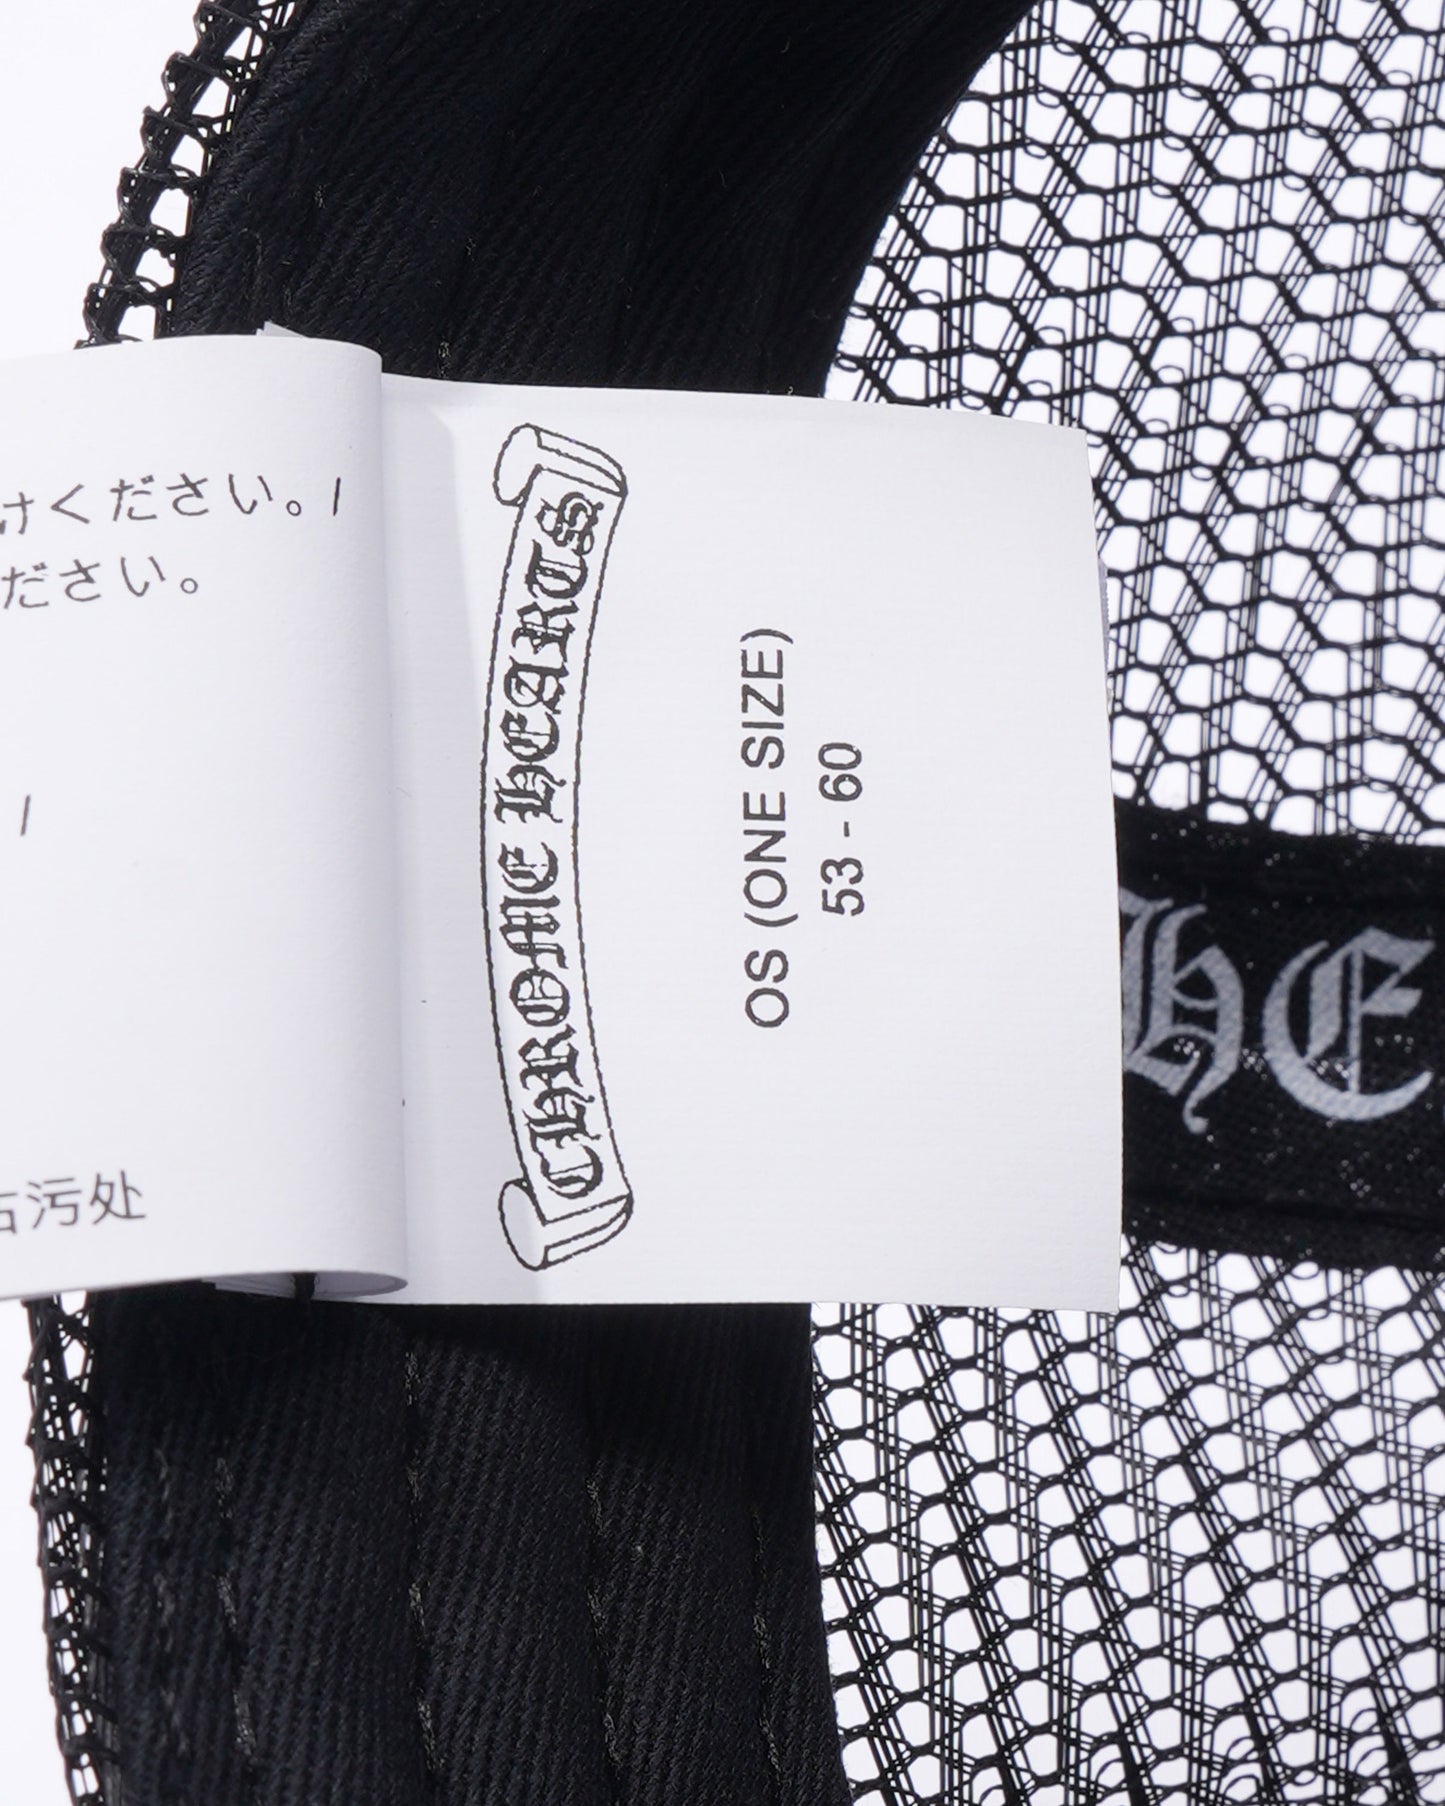 けください。/
ださい。
/
污处
CHROME HEARTS
OS (ONE SIZE)
53 - 60
HE